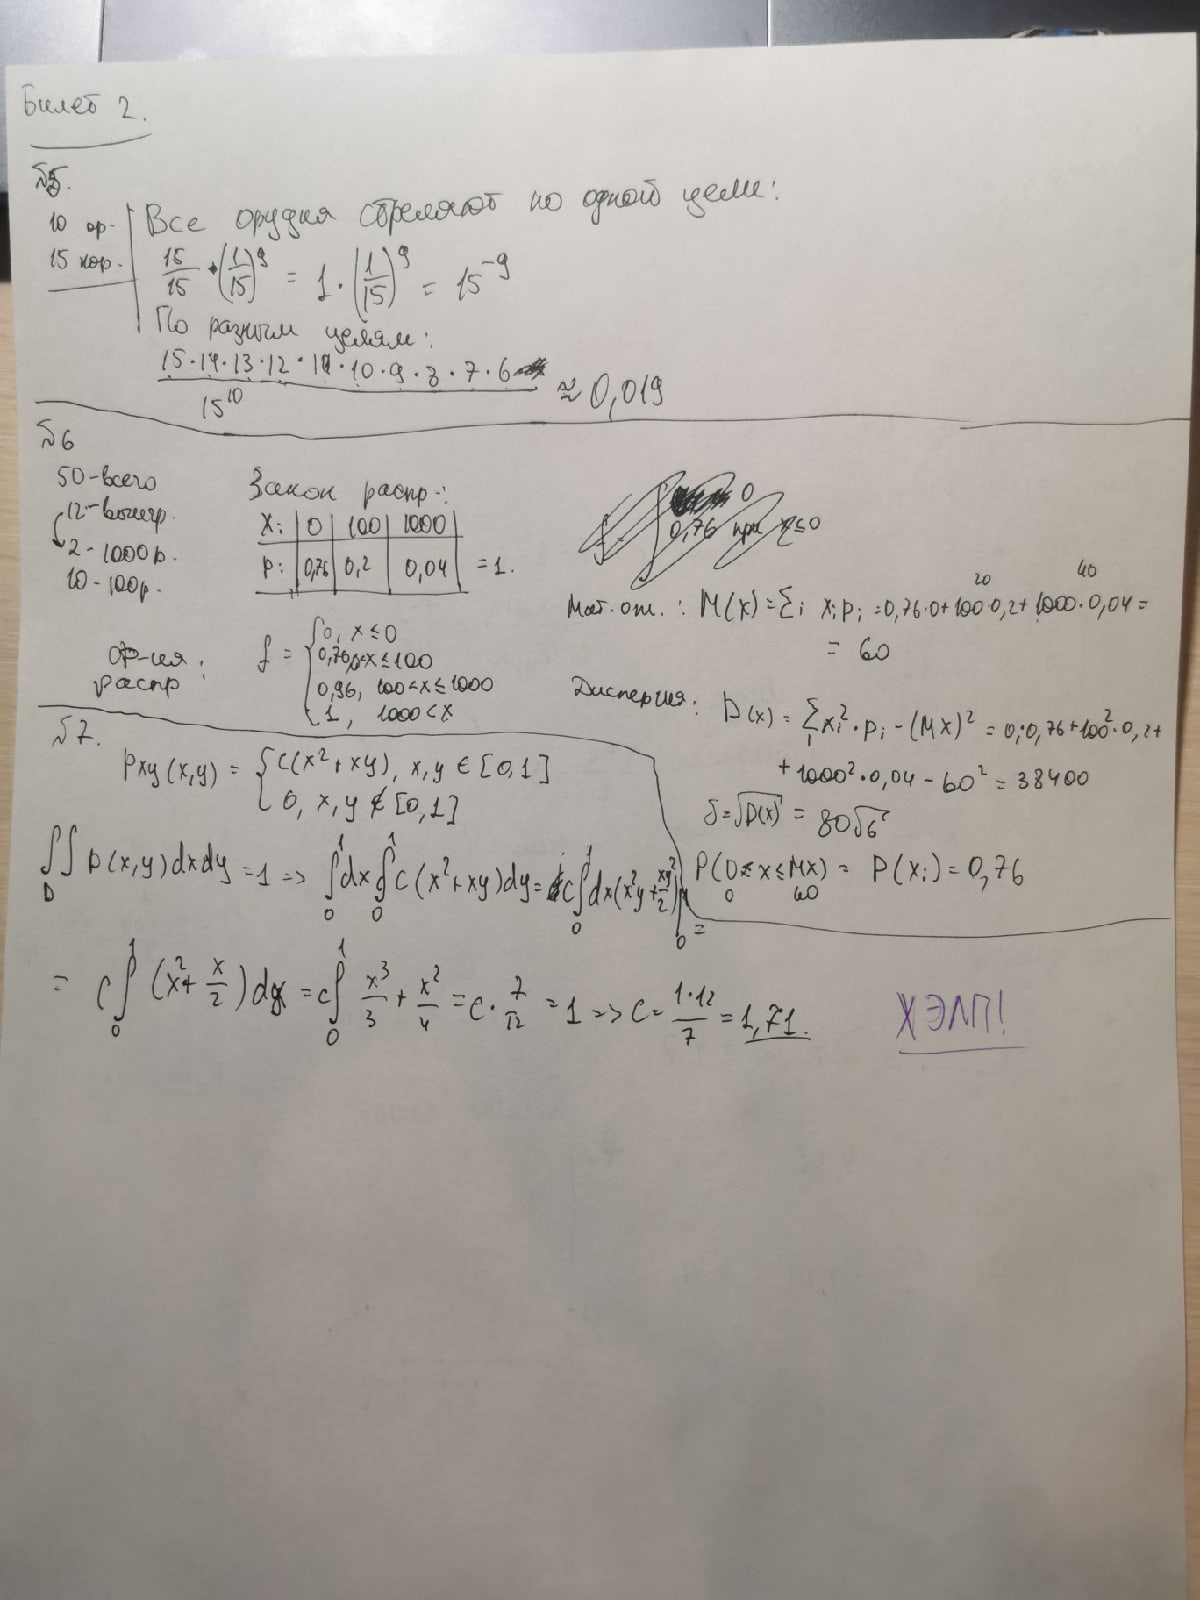 Билет 2.
№5.
10 ор.
15 кор.
Все орудия стреляют по одной цели:
15/15 · (1/15)^9 = 1 · (1/15)^9 = 15^-9
По разным целям:
15·14·13·12·11·10·9·8·7·6 / 15^10 ≈ 0,019
№6
50-всего
12-выигр.
2-1000р.
10-100р.
Закон распр-:
Xi | 0 | 100 | 1000
Pi | 0,76 | 0,2 | 0,04 = 1.
Ф-ия распр:
f = { 0, x ≤ 0
0,76, 0<x ≤ 100
0,96, 100<x ≤ 1000
1, 1000<x
0
0,76 при x≤0
20 40
Мат. ож.: M(x) = Σi xi pi = 0,76·0+100·0,2+1000·0,04 =
= 60
Дисперсия: D(x) = Σi xi²·pi - (Mx)² = 0·0,76+100²·0,2+
+1000²·0,04 - 60² = 38400
δ=√D(x) = 80√6
P(0≤x≤Mx) = P(xi) = 0,76
0 60
№7.
Pxy(x,y) = { C(x²+xy), x,y ∈ [0,1]
0, x,y ∉ [0,1]
∬D p(x,y)dxdy = 1 => ∫₀¹dx ∫₀¹ c(x²+xy)dy = c∫₀¹dx(x²y+xy²/2)|₀¹ =
= c∫₀¹ (x²+x/2)dx = c∫₀¹ x³/3 + x²/4 = c·7/12 = 1 => C = 1·12/7 = 1,71.
ХЭЛП!